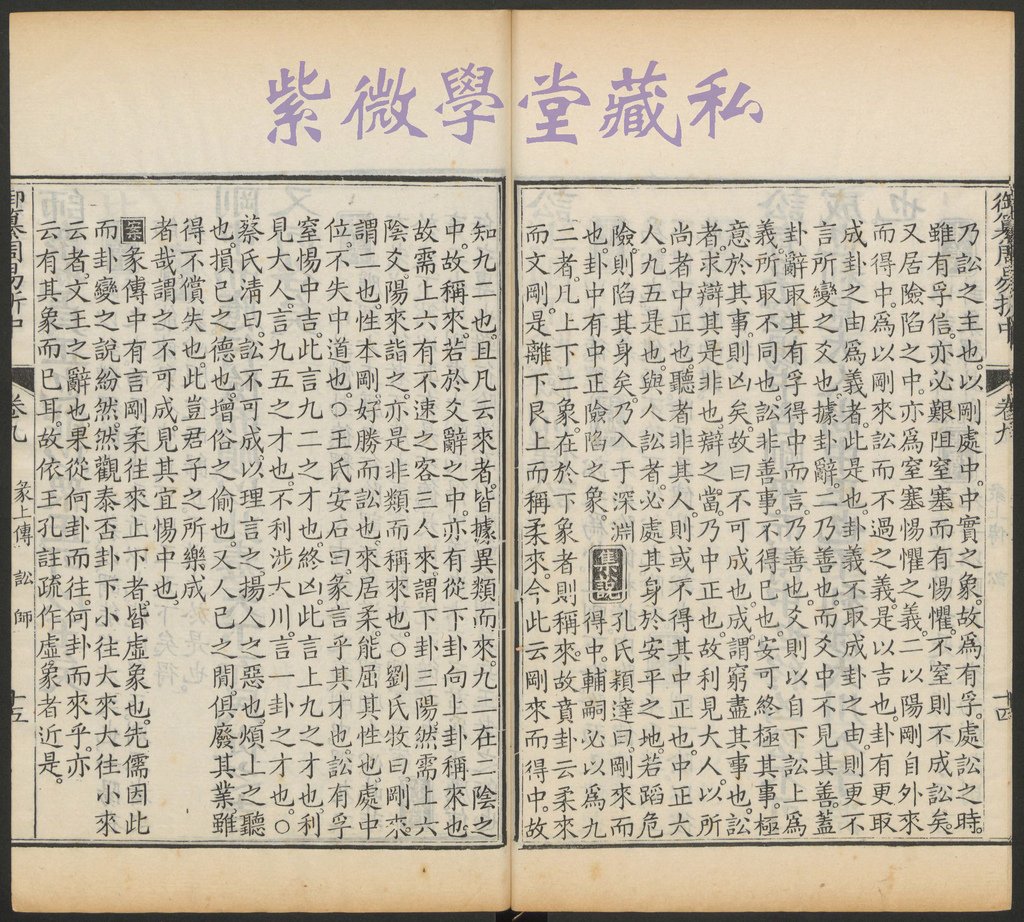 紫微學堂藏私
御纂周易折中 卷九 彖上傳 訟 十四
乃訟之主也。以剛處中。中實之象。故爲有孚。處訟之時。
雖有孚信。亦必艱阻窒塞而有惕懼。不窒則不成訟矣。
又居險陷之中。亦爲窒塞惕懼之義。二以陽剛自外來
而得中。爲以剛來訟而不過之義。是以吉也。卦有更取
成卦之由爲義者。此是也。卦義不取成卦之由。則更不
言所變之爻也。據卦辭。二乃善也。而爻中不見其善。蓋
卦辭取其有孚得中而言。乃善也。爻則以自下訟上爲
義。所取不同也。訟非善事。不得已也。安可終極其事。極
意於其事。則凶矣。故曰不可成也。成謂窮盡其事也。訟
者求辯其是非也。辯之當。乃中正也。故利見大人。以所
尚者中正也。聽者非其人。則或不得其中正也。中正大
人。九五是也。與人訟者。必處其身於安平之地。若蹈危
險。則陷其身矣。乃入于深淵 集說 孔氏穎達曰。剛來而
也。卦中有中正險陷之象。得中。輔嗣必以爲九
二者。凡上下二象。在於下象者。則稱來。故賁卦云柔來
而文剛。是離下艮上而稱柔來。今此云剛來而得中。故
知九二也。且凡云來者。皆據異類而來。九二在二陰之
中。故稱來。若於爻辭之中。亦有從下卦向上卦稱來也
故需上六有不速之客三人來。謂下卦三陽。然需上六
陰爻陽來詣之。亦是非類而稱來也。○劉氏牧曰。剛來
謂二也。性本剛。好勝而訟也。來居柔。能屈其性也。處中
位。不失中道也。○王氏安石曰。彖言乎其才也。訟有孚
窒惕中吉。此言九二之才也。終凶。此言上九之才也。利
見大人。言九五之才也。不利涉大川。言一卦之才也。○
蔡氏清曰。訟不可成。以理言之。揚人之惡也。煩上之聽
也。損己之德也。增俗之偷也。又人己之閒。俱廢其業。雖
得不償失也。此豈君子之所樂成
者哉。謂之不可成。見其宜惕中也。
案 彖傳中有言剛柔往來上下者。皆虛象也。先儒因此
而卦變之說紛然。然觀泰否卦下小往大來大往小來
云者。文王之辭也。果從何卦而往。何卦而來乎。亦
云有其象而已耳。故依王孔註疏作虛象者近是。
御纂周易折中 卷九 彖上傳 訟 師 十五